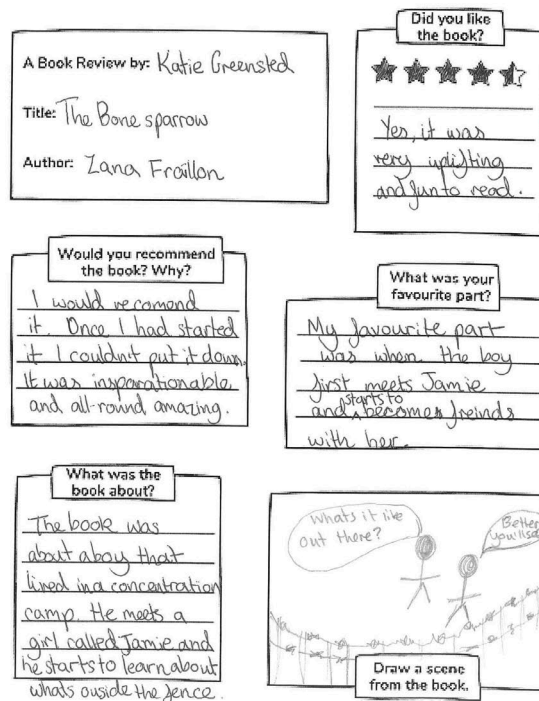 A Book Review by: Katie Greensted
Title: The Bone sparrow
Author: Zana Fraillon
Did you like
the book?
Yes, it was
very uplifting
and fun to read.
Would you recommend
the book? Why?
I would recomend
it. Once I had started
it I couldn't put it down.
It was insparationable
and all-round amazing.
What was your
favourite part?
My favourite part
was when the boy
first meets Jamie
and starts to becomes freinds
with her.
What was the
book about?
The book was
about a boy that
lived in a concentration
camp. He meets a
girl called Jamie and
he starts to learn about
whats ouside the fence.
Whats it like
out there?
Better
you'll see
Draw a scene
from the book.